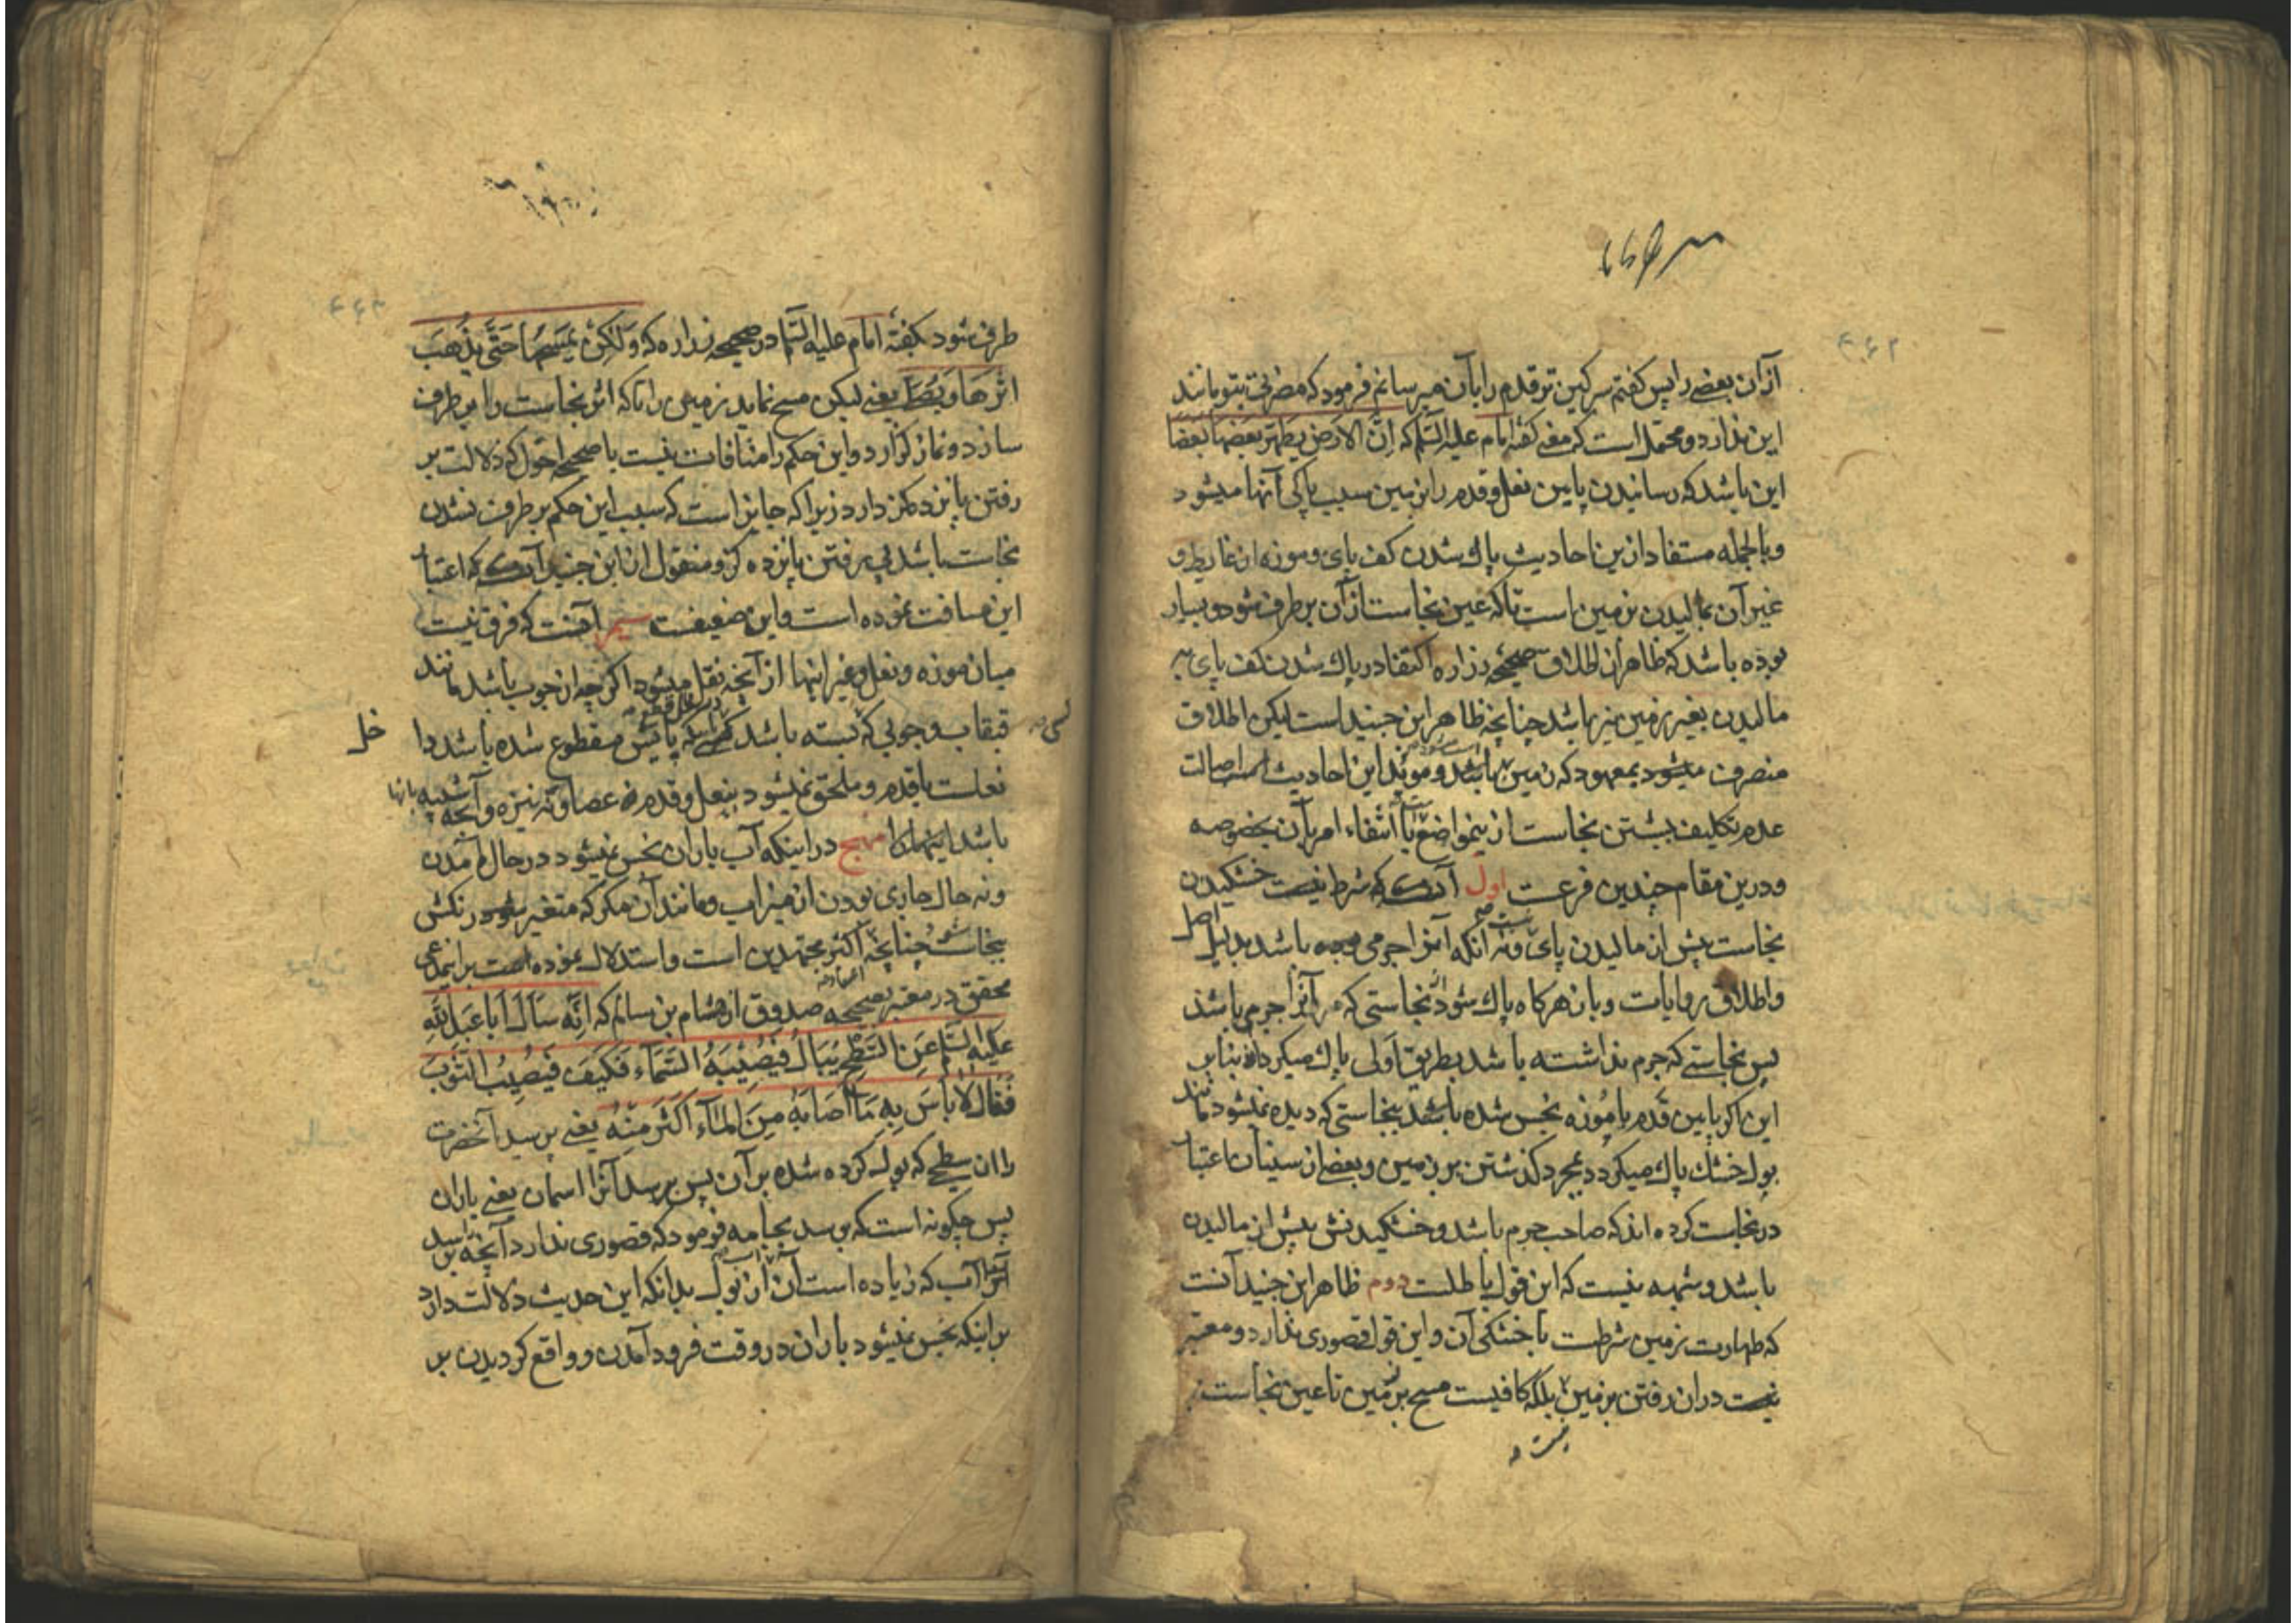 از آن بعضی را پس گفتم سرکین تر قدم را بآن میرسانم فرمود که مضرتی بتو مانند
این ندارد و محتمل است که معنی گفته امام علیه السلام که اِنَّ الارضَ یطهّر بعضها بعضا
این باشد که رسانیدن پایین نعل و قدم را بزمین سبب پاکی آنها میشود
و بالجمله مستفاد ازین احادیث پاک شدن کف پای و موزه از غایط و
غیر آن بمالیدن بزمین است تا که عین نجاست از آن بر طرف شود و بسیار
بوده باشد که ظاهر از اطلاق صحیحه زراره اکتفا در پاک شدن کف پای به
مالیدن بغیر زمین نیز باشد چنانچه ظاهر ابن جنید است لیکن اطلاق
منصرف میشود بمعهود که زمین باشد و موید این احادیث است اصالت
عدم تکلیف بشستن نجاست از ینمواضع با انتفاء امر بآن بخصوصه
و درین مقام چندین فرعست اول آن که شرط نیست خشکیدن
نجاست پیش از مالیدن پای و نه آنکه آنرا جرمی بوده باشد بدلیل اصل
و اطلاق روایات و بآن هرگاه پاک شود نجاستی که آنرا جرمی باشد
پس نجاستی که جرم نداشته باشد بطریق اَولی پاک میکردد بنابر
این اکر پایین قدم یا موزه نجس شده باشد بنجاستی که دیده نمیشود مانند
بول خشک پاک میکردد بمجرد کذشتن بر زمین و بعضی از سینان اعتبار
در نجاست کرده اند که صاحب جرم باشد و خشکیدنش پیش از مالیدن
باشد و شبهه نیست که این قول باطلست دوم ظاهر ابن جنید آنست
که طهارت زمین شرطست با خشکی آن و این قول قصوری ندارد و معتبر
نیست در آن رفتن بر زمین بلکه کافیست مسح بزمین تا عین نجاست
طرف شود بگفته امام علیه السلام در صحیحه زراره که وَلکِن یَمسَحُها حَتّی یَذهَبَ
اثرها وَیُصَلّی یعنی لیکن مسح نماید زمین را تا که اثر نجاست را بر طرف
سازد و نماز کزارد و این حکم را منافات نیست با صحیحه احول که دلالت بر
رفتن پانزده کز دارد زیرا که جایز است که سبب این حکم بر طرف نشدن
نجاست باشد بی رفتن پانزده کز و منقول از ابن جنید آن که اعتبار
این مسافت نموده است و این ضعیفست سیم آنست که فرق نیست
میان موزه و نعل و غیر اینها از آنچه نقل میشود اکر چه از چوب باشد مانند
قبقاب و چوبی که بسته باشد کسی که پایش مقطوع شده باشد
نعلست یا قدم و ملحق نمیشود بنعل و قدم نه عصا و نه نیزه و آنچه شبیه بآنها
باشد منهج در اینکه آب باران نجس نمیشود در حال آمدن
و نه حال جاری بودن از میزاب و مانند آن مکر که متغیر شود رنکش
بنجاست چنانچه اکثر مجتهدین است و استدلال نموده است بر اینمدعی
محقق در معتبر بصحیحه صدوق از هشام بن سالم که اِنَّه سَاَلَ اَبا عَبدِ اللهِ
عَلَیهِ السَّلام عَنِ السَّطحِ یُبالُ فَیُصیبَهُ السَّماء فَکَیفَ فَیُصِیبُ الثَّوبَ
فَقالَ لا بأسَ بِهِ مَا اَصابَهُ مِنَ الماءِ اَکثَرُ مِنهُ یعنی پرسید آنحضرت
را از سطحی که بول کرده شده بر آن پس برسد آنرا اسمان یعنی باران
پس چکونه است که برسد بجامه فرمود که قصوری ندارد آنچه برسد
آنرا آب که زیاده است آن از بول بدانکه این حدیث دلالت دارد
بر اینکه نجس نمیشود باران در وقت فرود آمدن و واقع کردیدن بر